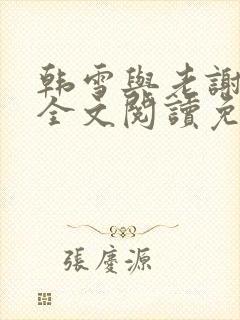 韩雪與老謝
全文閱讀免
張慶源